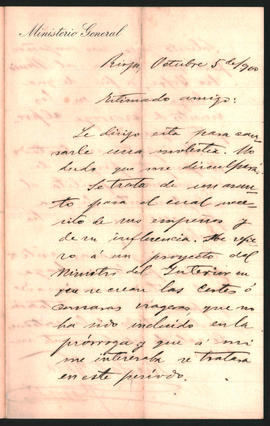 Ministerio General
Rioja, Octubre 5 de 1900
Estimado amigo:
Le dirijo esta para cau-
sarle una molestia. No
dudo que me disculpará.
Se trata de un asun-
to para el cual nece-
sito de sus empeños y
de su influencia. Me refie-
ro á un proyecto del
Ministro del Interior en
que se crean las
que no
ha sido incluido en la
prórroga y que á mi
me interesaba se tratara
en este período.